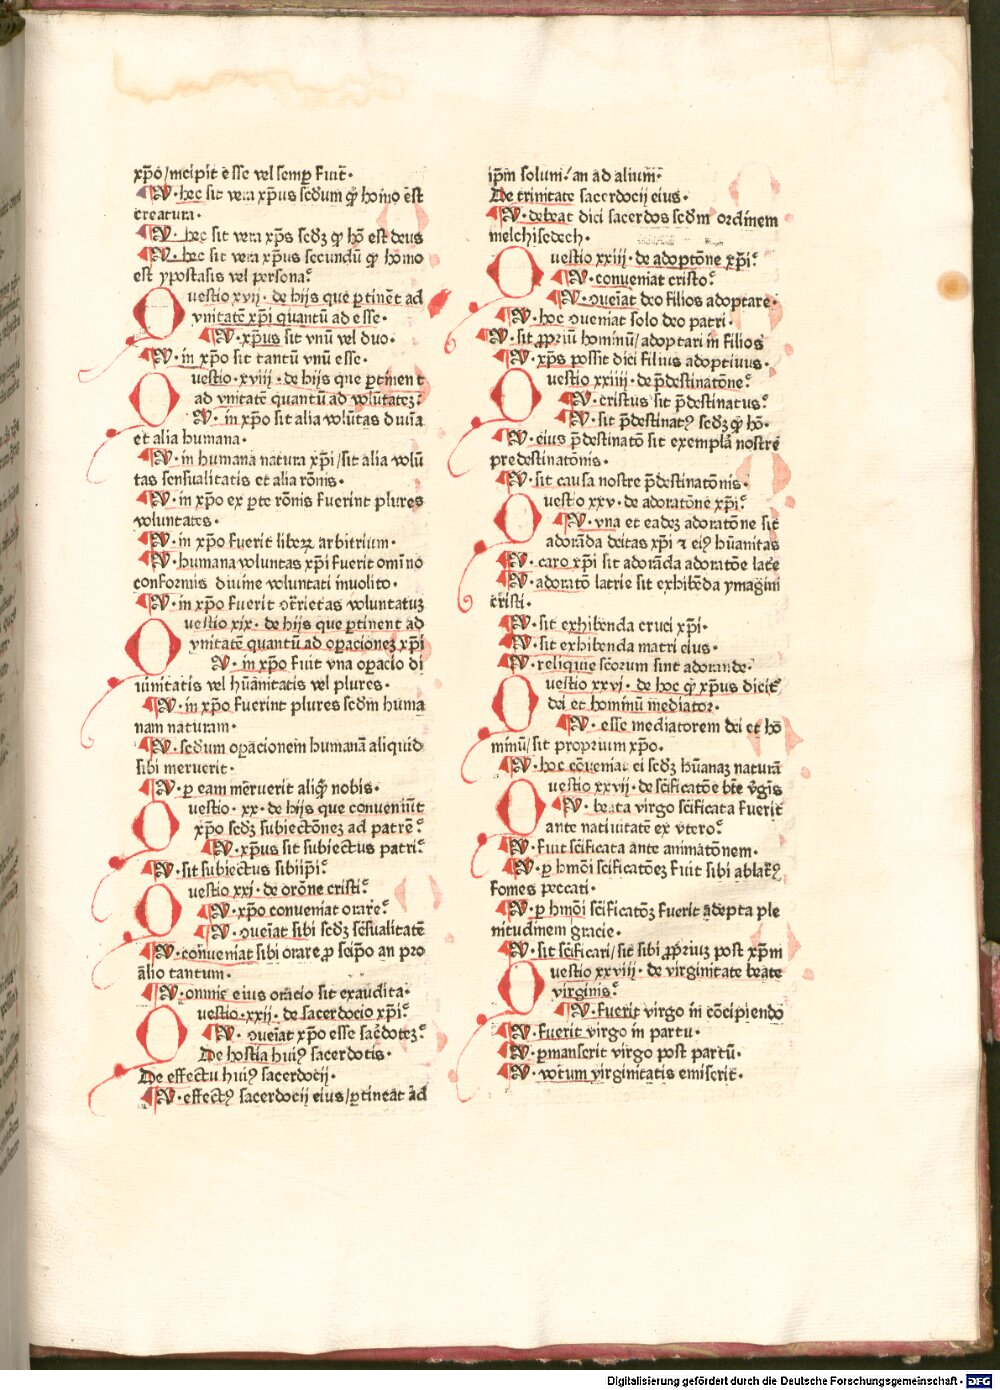 xp̄o/incipit ēsse vel semp fuit̄·
V̄· hec sit vera xp̄us scd̄um ꝙ homo ēst
creatura·
V̄· hec sit vera xp̄s scdꝫ ꝙ hō est deus
V̄· hec sit vera xp̄us secundū ꝙ homo
est ypostasis vel persona?
Questio xvij· de hijs que ꝑtinēt ad
vnitatē xp̄i quantū ad esse·
V̄· xp̄us sit vnū vel duo·
V̄· in xp̄o sit tantū vnū esse·
Questio·xviij·de hijs que ꝑtinent
ad vnitatē quantū ad volūtateꝫ?
V̄· in xp̄o sit alia volūtas diuīa
et alia humana·
V̄· in humana natura xp̄i/sit alia volū
tas sensualitatis et alia rōnis·
V̄· in xp̄o ex ꝑte rōnis fuerint plures
voluntates·
V̄· in xp̄o fuerit liberꝝ arbitrium·
V̄· humana voluntas xp̄i fuerit omīno
conformis diuine voluntati in volito·
V̄· in xp̄o fuerit ꝯtrietas voluntatuꝫ
Questio xix· de hijs que ꝑtinent ad
vnitatē quantū ad oꝑacioneꝫ xp̄i
V̄· in xp̄o fuit vna oꝑacio di
uinitatis vel hūanitatis vel plures·
V̄· in xp̄o fuerint plures scdm huma
nam naturam·
V̄· scd̄um oꝑacionem humanā aliquid
sibi meruerit·
V̄· ꝑ eam meruerit aliqͥ nobis·
Questio·xx·de hijs que conueniūt
xp̄o scdꝫ subiectōneꝫ ad patrē?
V̄· xp̄us sit subiectus patri?
V̄· sit subiectus sibiip̄i?
Questio xxj· de orōne cristi?
V̄· xp̄o conueniat orare?
V̄· ꝯueīat sibi scdꝫ sēsualitatē
V̄· conueniat sibi orare ꝓ seip̄o an pro
alio tantum·
V̄· omnis eius oracio sit exaudita·
Questio·xxij·de sacerdocio xp̄i?
V̄· ꝯueīat xp̄o esse sac̄doteꝫ?
De hostia huiꝰ sacerdotis·
De effectu huiꝰ sacerdocij·
V̄· effectꝰ sacerdocij eius/ꝑtineat ad
ip̄m solum/an ad alium?
De trinitate sacerdocij eius·
V̄· debeat dici sacerdos scdm ordinem
melchisedech·
Questio xxiij· de adoptōne xp̄i?
V̄· conueniat cristo?
V̄· ꝯueīat deo filios adoptare·
V̄· hoc ꝯueniat solo deo patri·
V̄· sit ꝓpriū hominū/adoptari in filios
V̄· xp̄s possit dici filius adoptiuus·
Questio xxiiij· de p̄destinatōne?
V̄· cristus sit p̄destinatus?
V̄· sit p̄destinatꝰ scdꝫ ꝙ hō·
V̄· eius p̄destinatō sit exempla nostre
predestinatōnis·
V̄· sit causa nostre p̄destinatōnis·
Questio xxv· de adoratōne xp̄i?
V̄· vna et eadeꝫ adoratōne sit
adorāda deitas xp̄i ⁊ eiꝰ hūanitas
V̄· caro xp̄i sit adorāda adoratōe lat̄e
V̄· adoratō latrie sit exhibēda ymagini
cristi·
V̄· sit exhibenda cruci xp̄i·
V̄· sit exhibenda matri eius·
V̄· reliquie scorum sint adorande·
Questio xxvj· de hoc ꝙ xp̄us dicit̄
dei et hominū mediator·
V̄· esse mediatorem dei et hō
minū/sit proprium xp̄o·
V̄· hoc cōueniat ei scdꝫ hūanaꝫ naturā
Questio xxvij· de scīficatōe bt̄e v̄gīs
V̄· beata virgo scīficata fuerit
ante natiuitatē ex vtero?
V̄· fuit scīficata ante animatōnem·
V̄· ꝑ hmōi scīficatōeꝫ fuit sibi ablatꝰ
fomes peccati·
V̄· ꝑ hmōi scīficatōꝫ fuerit adepta ple
nitudinem gracie·
V̄· sit scīficari/sit sibi ꝓpriuꝫ post xp̄m
Questio xxviij· de virginitate beate
virginis?
V̄· fuerit virgo in cōcipiendo
V̄· fuerit virgo in partu·
V̄· ꝑmanserit virgo post partū·
V̄· votum virginitatis emiserit·
Digitalisierung gefördert durch die Deutsche Forschungsgemeinschaft - DFG